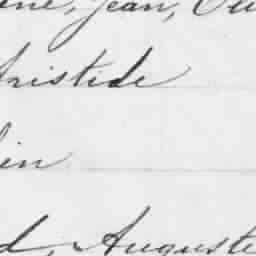 ne, Jean, Ou
Aristide
lin
d, Auguste